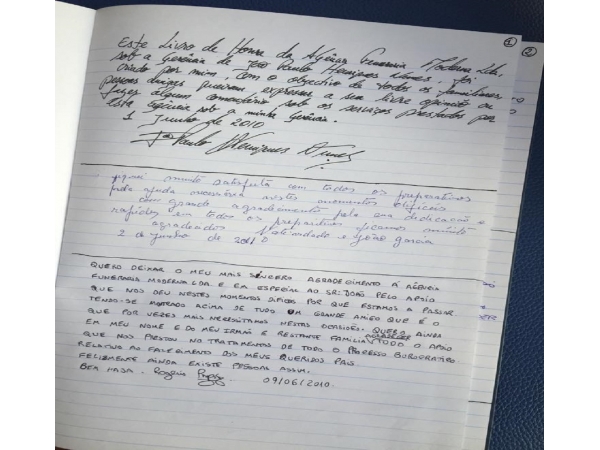 1
2
Este Livro de Honra da Agência Funerária Moderna Lda.
sob a Gerência de João Paulo Henriques Nunes, foi
criado por mim, com o objectivo de todos os familiares,
pessoas amigas queiram, expressar a sua livre opinião ou
fazer algum comentário sobre os serviços prestados por
esta agência sob a minha Gerência.
1 Junho de 2010
João Paulo Henriques Nunes
muito satisfeita com todos os preparativos
pela ajuda necessária nestes momentos difíceis
com grande agradecimento pela sua dedicação e
rapidez em todos os preparativos ficamos muito
agradecidos e João Garcia
2 de Junho de
QUERO DEIXAR O MEU MAIS SINCERO AGRADECIMENTO Á AGÊNCIA
FUNERARIA MODERNA LDA. E EM ESPECIAL AO SR: JOÃO PELO APOIO
QUE NOS DEU NESTES MOMENTOS DIFICEIS POR QUE ESTAMOS A PASSAR
TENDO-SE MOSTRADO ACIMA DE TUDO UM GRANDE AMIGO QUE É O
QUE POR VEZES MAIS NECESSITAMOS NESTAS OCASIÕES. QUERO AINDA
EM MEU NOME E DO MEU IRMÃO E RESTANTE FAMILIA AGRADECER TODO O APOIO
QUE NOS PRESTOU NO TRATAMENTOS DE TODO O PROCESSO BUROCRATICO
RELATIVO AO FALECIMENTO DOS MEUS QUERIDOS PAIS
FELIZMENTE AINDA EXISTE PESSOAL ASSIM.
BEM HAJA. Rogério 09/06/2010.